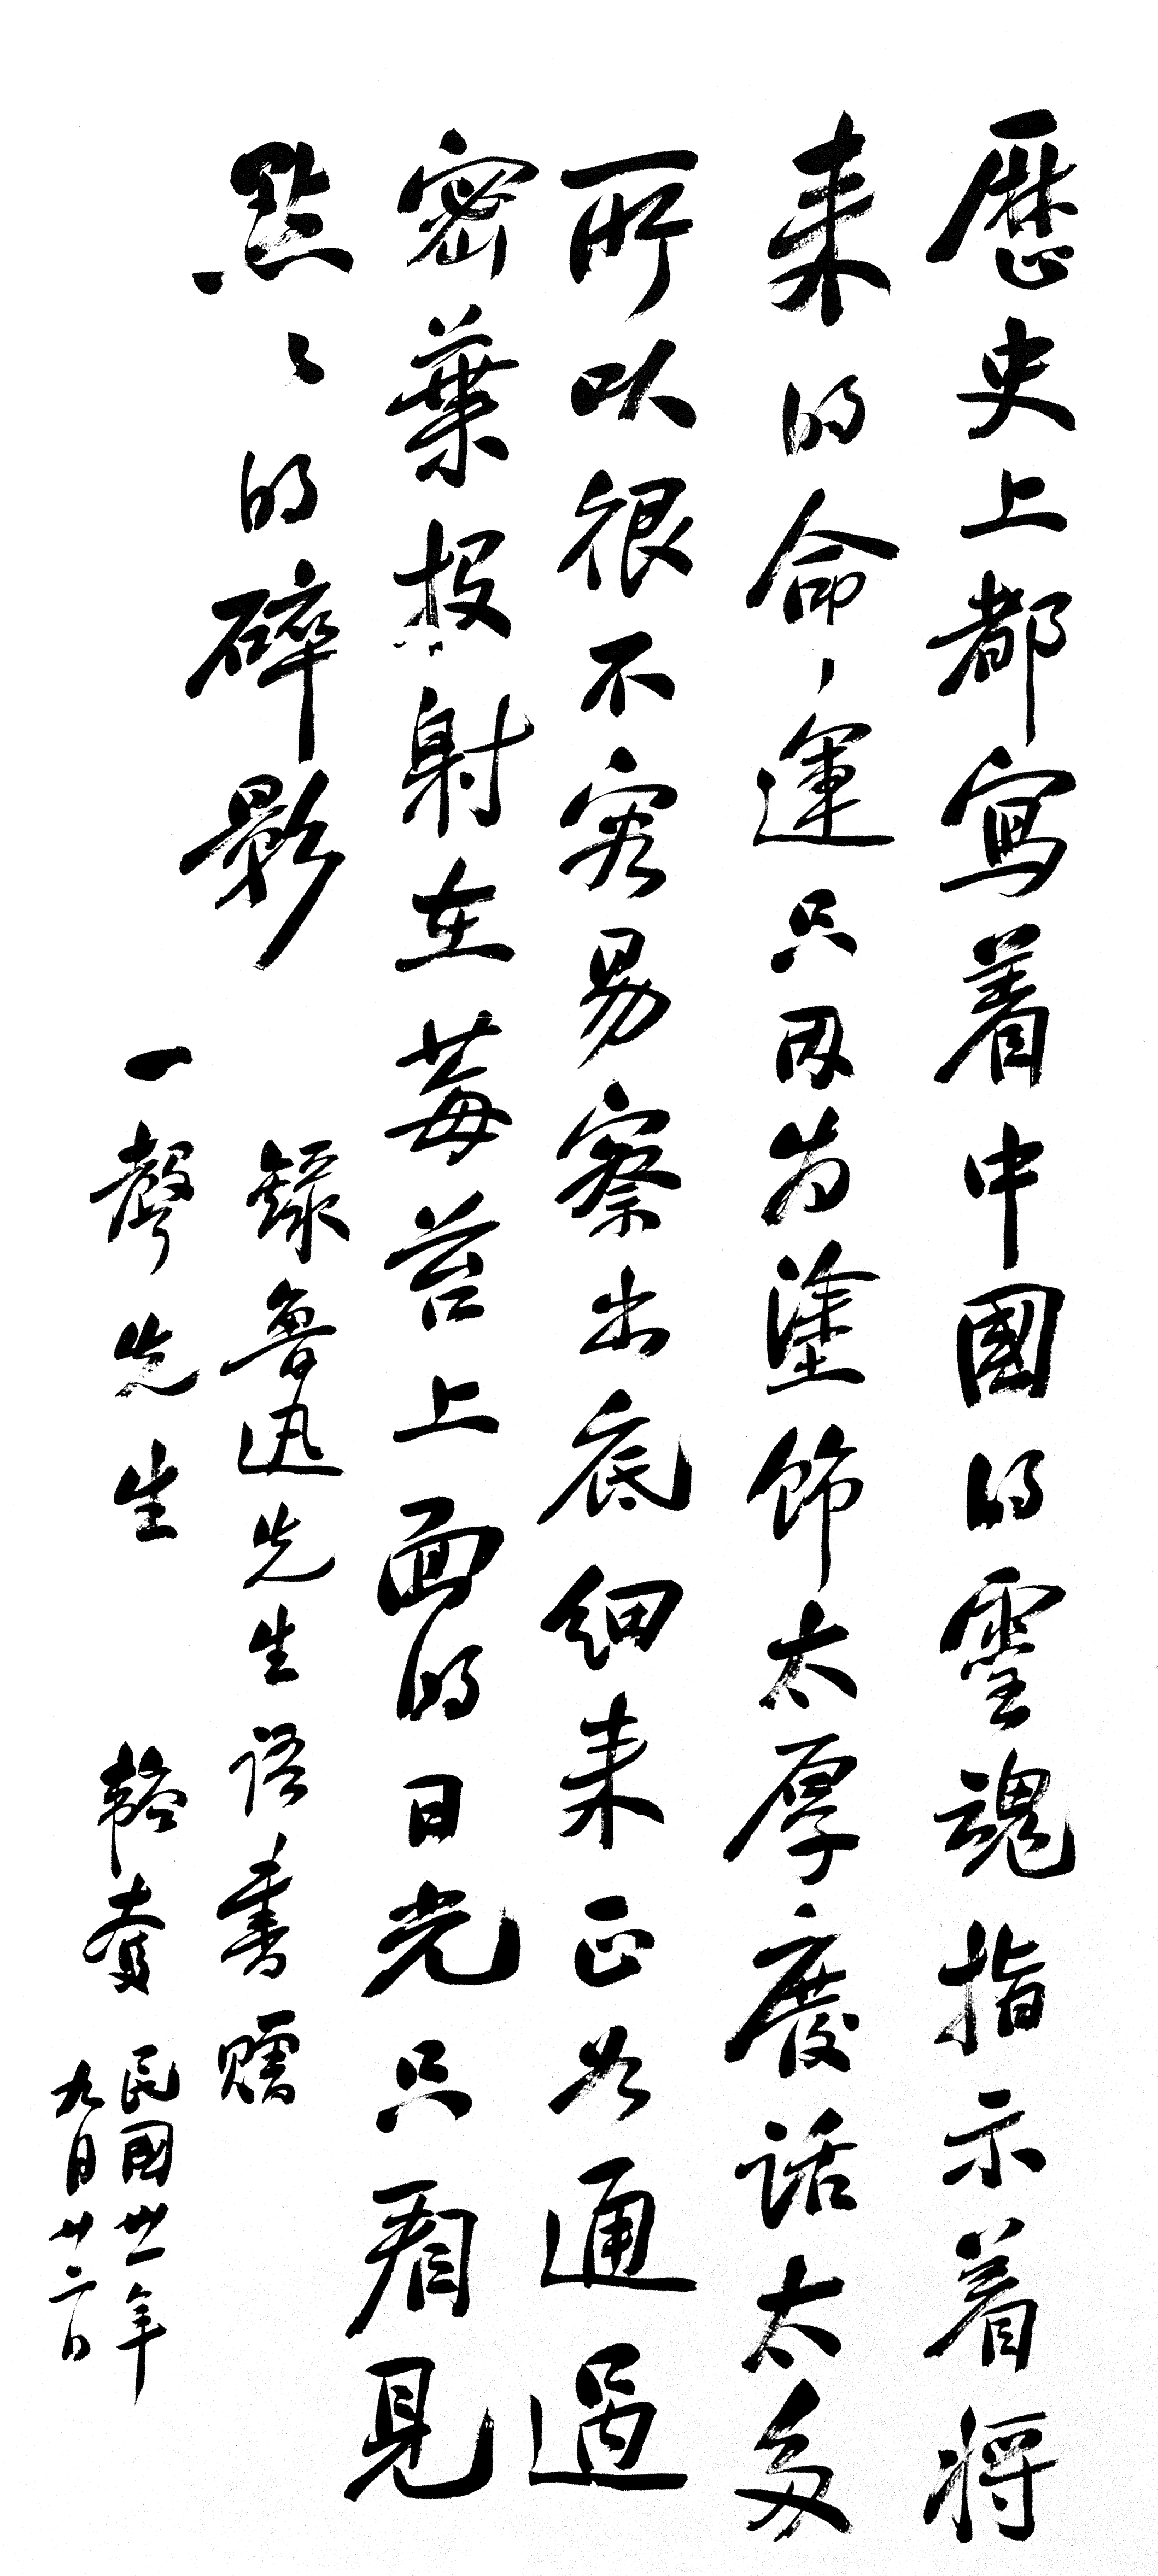 歷史上都寫着中國的靈魂指示着將
来的命運只因为塗飾太厚廢話太多
所以很不容易察出底細来正如通過
密葉投射在莓苔上面的日光只看見
點〻的碎影
錄魯迅先生語書贈
一聲先生
韜奮
民國卅一年
九月廿二日